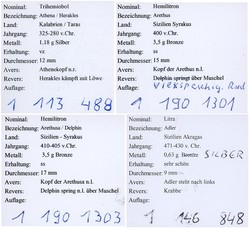 Nominal: Trihemiobol
Bezeichnung: Athena / Herakles
Land: Kalabrien / Taras
Jahrgang: 325-280 v.Chr.
Metall: 1,18 g Silber
Erhaltung: vz
Durchmesser: 12 mm
Avers: Athenekopf n.l.
Revers: Herakles kämpft mit Löwe
Auflage:
1 113 488
Nominal: Hemilitron
Bezeichnung: Arethusa
Land: Sizilien Syrakus
Jahrgang: 400 v.Chr.
Metall: 3,5 g Bronze
Erhaltung: ss
Durchmesser: 15 mm
Avers: Kopf der Arethusa n.l.
Revers: Delphin springt über Muschel
Auflage:
1 190 1301
Nominal: Hemilitron
Bezeichnung: Arethusa / Delphin
Land: Sizilien - Syrakus
Jahrgang: 410-405 v.Chr.
Metall: 3,5 g Bronze
Erhaltung: ss
Durchmesser: 17 mm
Avers: Kopf der Arethusa n.l.
Revers: Delphin spring n.l. über Muschel
Auflage:
1 190 1303
Nominal: Litra
Bezeichnung: Adler
Land: Sizilien Akragas
Jahrgang: 471-430 v. Chr.
Metall: 0,63 g SILBER
Erhaltung: sehr schön
Durchmesser: 9 mm
Avers: Adler steht nach links
Revers: Krabbe
Auflage:
1 146 848